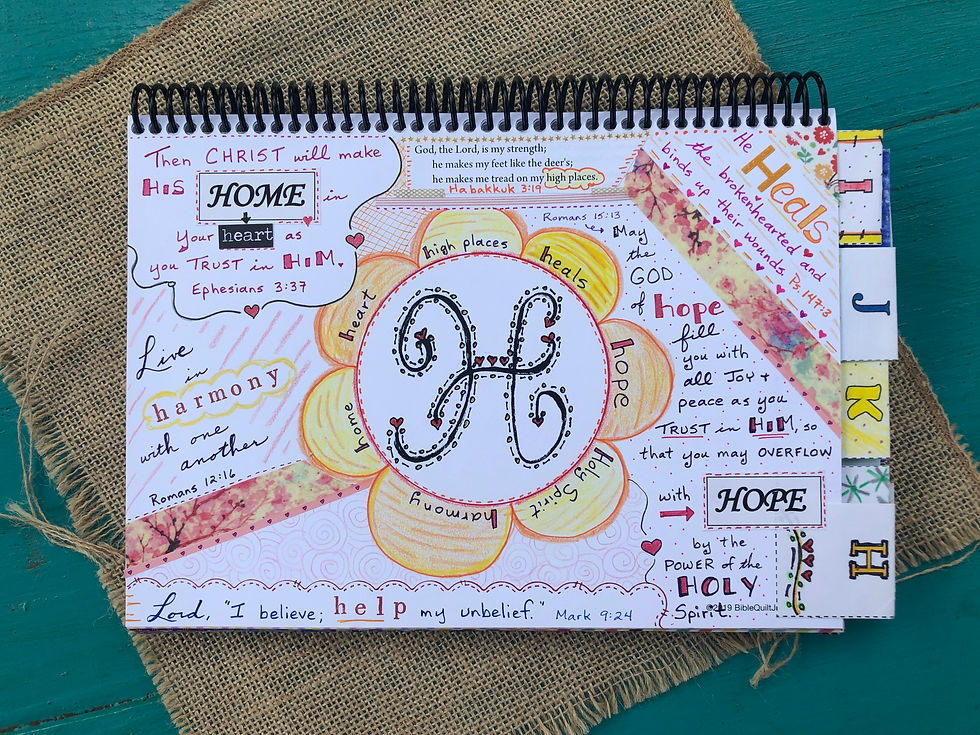 Then CHRIST will make
HiS HOME in
your heart as
you TRUST in HiM.
Ephesians 3:37
God, the Lord, is my strength;
he makes my feet like the deer's;
he makes me tread on my high places.
Habakkuk 3:19
He Heals
the brokenhearted and
binds up their wounds. Ps. 147:3
Romans 15:13
May
the
GOD
of hope
fill
you with
all Joy +
peace as you
TRUST in HiM, so
that you may OVERFLOW
with HOPE
by the
POWER of the
HOLY
Spirit.
Live
in
harmony
with one
another
Romans 12:16
high places
heals
hope
Holy Spirit
harmony
home
heart
H
Lord, "I believe; help my unbelief." Mark 9:24
I
J
K
H